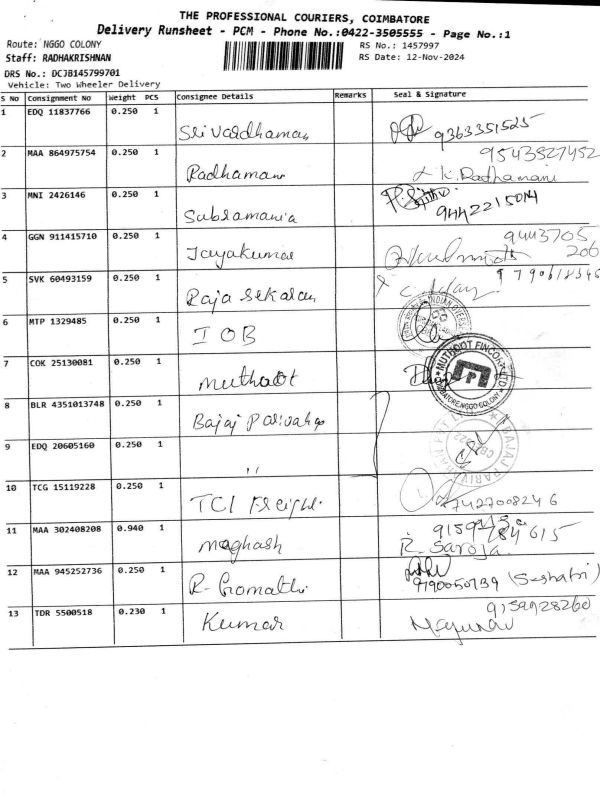 THE PROFESSIONAL COURIERS, COIMBATORE
Delivery Runsheet - PCM - Phone No.:0422-3505555 - Page No.:1
Route: NGGO COLONY
RS No.: 1457997
Staff: RADHAKRISHNAN
RS Date: 12-Nov-2024
DRS No.: DCJB145799701
Vehicle: Two Wheeler Delivery
S No Consignment No Weight PCS Consignee Details Remarks Seal & Signature
1 EDQ 11837766 0.250 1 Sri Vardhaman 9363351525
2 MAA 864975754 0.250 1 Radhamani 9543527452
K. Radhamani
3 MNI 2426146 0.250 1 Subramania 9442215014
4 GGN 911415710 0.250 1 Jayakumar 9443705
206
5 SVK 60493159 0.250 1 Raja Sekaran
6 MTP 1329485 0.250 1 IOB
7 COK 25130081 0.250 1 Muthoot MUTHOOT FINCORP LTD
COIMBATORE, NGGO COLONY
8 BLR 4351013748 0.250 1 Bajaj Parivahan
9 EDQ 20605160 0.250 1 "
BAJAJ PARIVAHAN
10 TCG 15119228 0.250 1 TCI Freight
11 MAA 302408208 0.940 1 Maghash
R. Saroja
12 MAA 945252736 0.250 1 R. Gomathi (Seshatri)
13 TDR 5500518 0.230 1 Kumar 9159928260